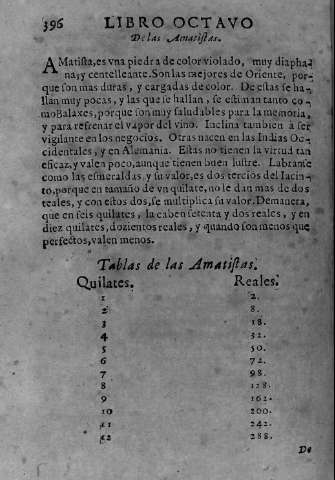 396 LIBRO OCTAVO
De las Amatistas.
AMatista, es vna piedra de color violado, muy diapha-
na, y centelleante. Son las mejores de Oriente, por-
que son mas duras, y cargadas de color. De estas se ha-
llan muy pocas, y las que se hallan, se estiman tanto co-
mo Balaxes, porque son muy saludables para la memoria,
y para refrenar el vapor del vino. Inclina tambien a ser
vigilante en los negocios. Otras nacen en las Indias Oc-
cidentales, y en Alemania. Estas no tienen la virtud tan
eficaz, y valen poco, aunque tienen buen lustre. Labranse
como las esmeraldas, y su valor, es dos tercios del Iacin-
to, porque en tamaño de vn quilate, no le dan mas de dos
reales, y con estos dos, se multiplica su valor. Demanera,
que en seis quilates, la caben setenta y dos reales, y en
diez quilates, dozientos reales, y quando son menos que
perfectos, valen menos.
Tablas de las Amatistas.
Quilates. Reales.
1 2.
2 8.
3 18.
4 32.
5 50.
6 72.
7 98.
8 128.
9 162.
10 200.
11 242.
12 288.
De